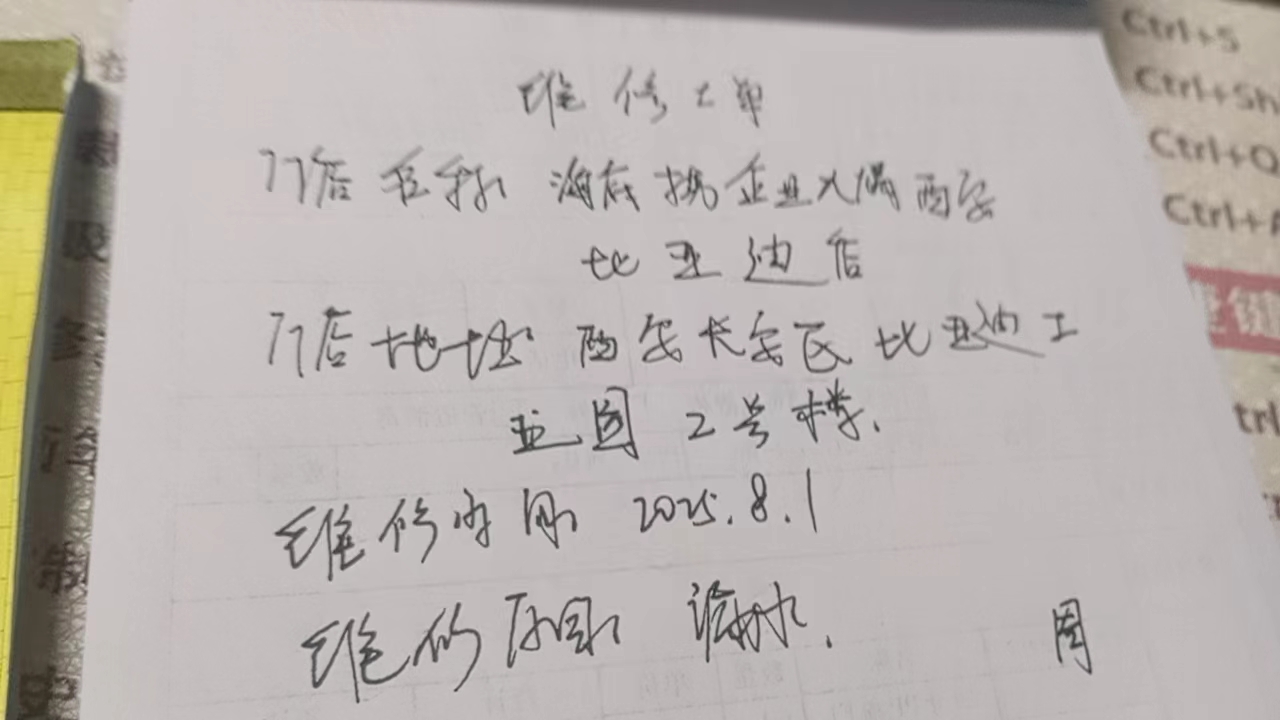 维修工单
门店名称 海底捞企业火锅西安
比亚迪店
门店地址 西安长安区比亚迪工
业园2号楼.
维修时间 2025.8.1
维修原因 漏水.
周
Ctrl+S
Ctrl+Sh
Ctrl+Q
Ctrl+A
键
trl